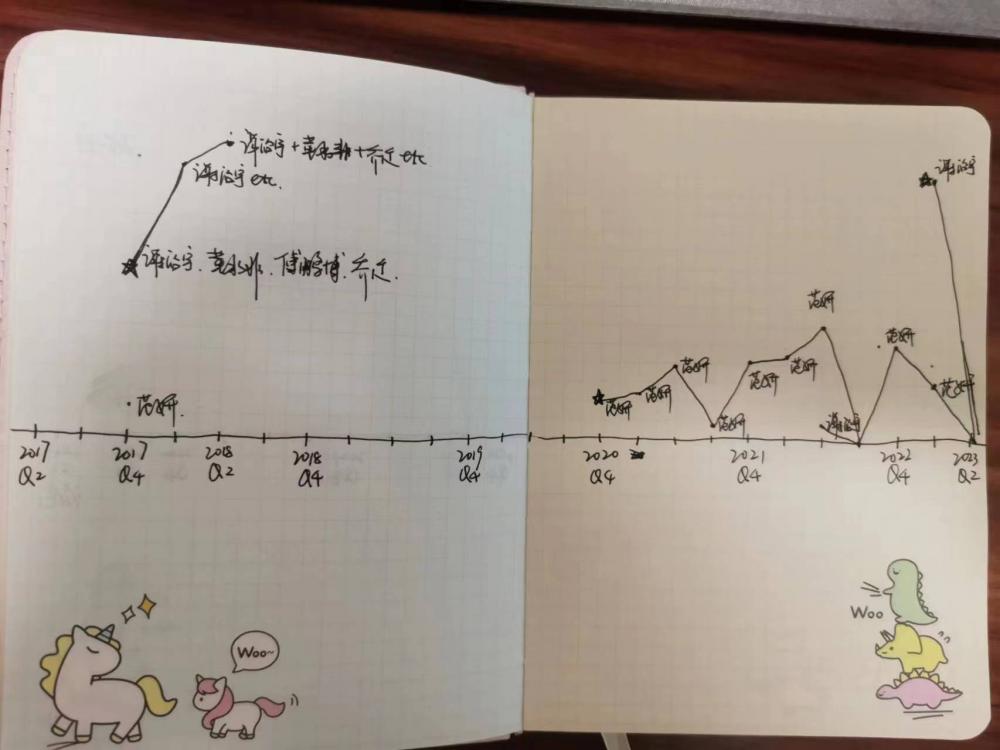 谢治宇+董承非+乔迁 etc
谢治宇 etc.
谢治宇、董承非、傅鹏博、乔迁.
范妍.
2017 Q2
2017 Q4
2018 Q2
2018 Q4
2019 Q4
Woo~
谢治宇
范妍
范妍
范妍
范妍
范妍
范妍
范妍
范妍
范妍
谢治宇
2020 Q4
2021 Q4
2022 Q4
2023 Q2
Woo